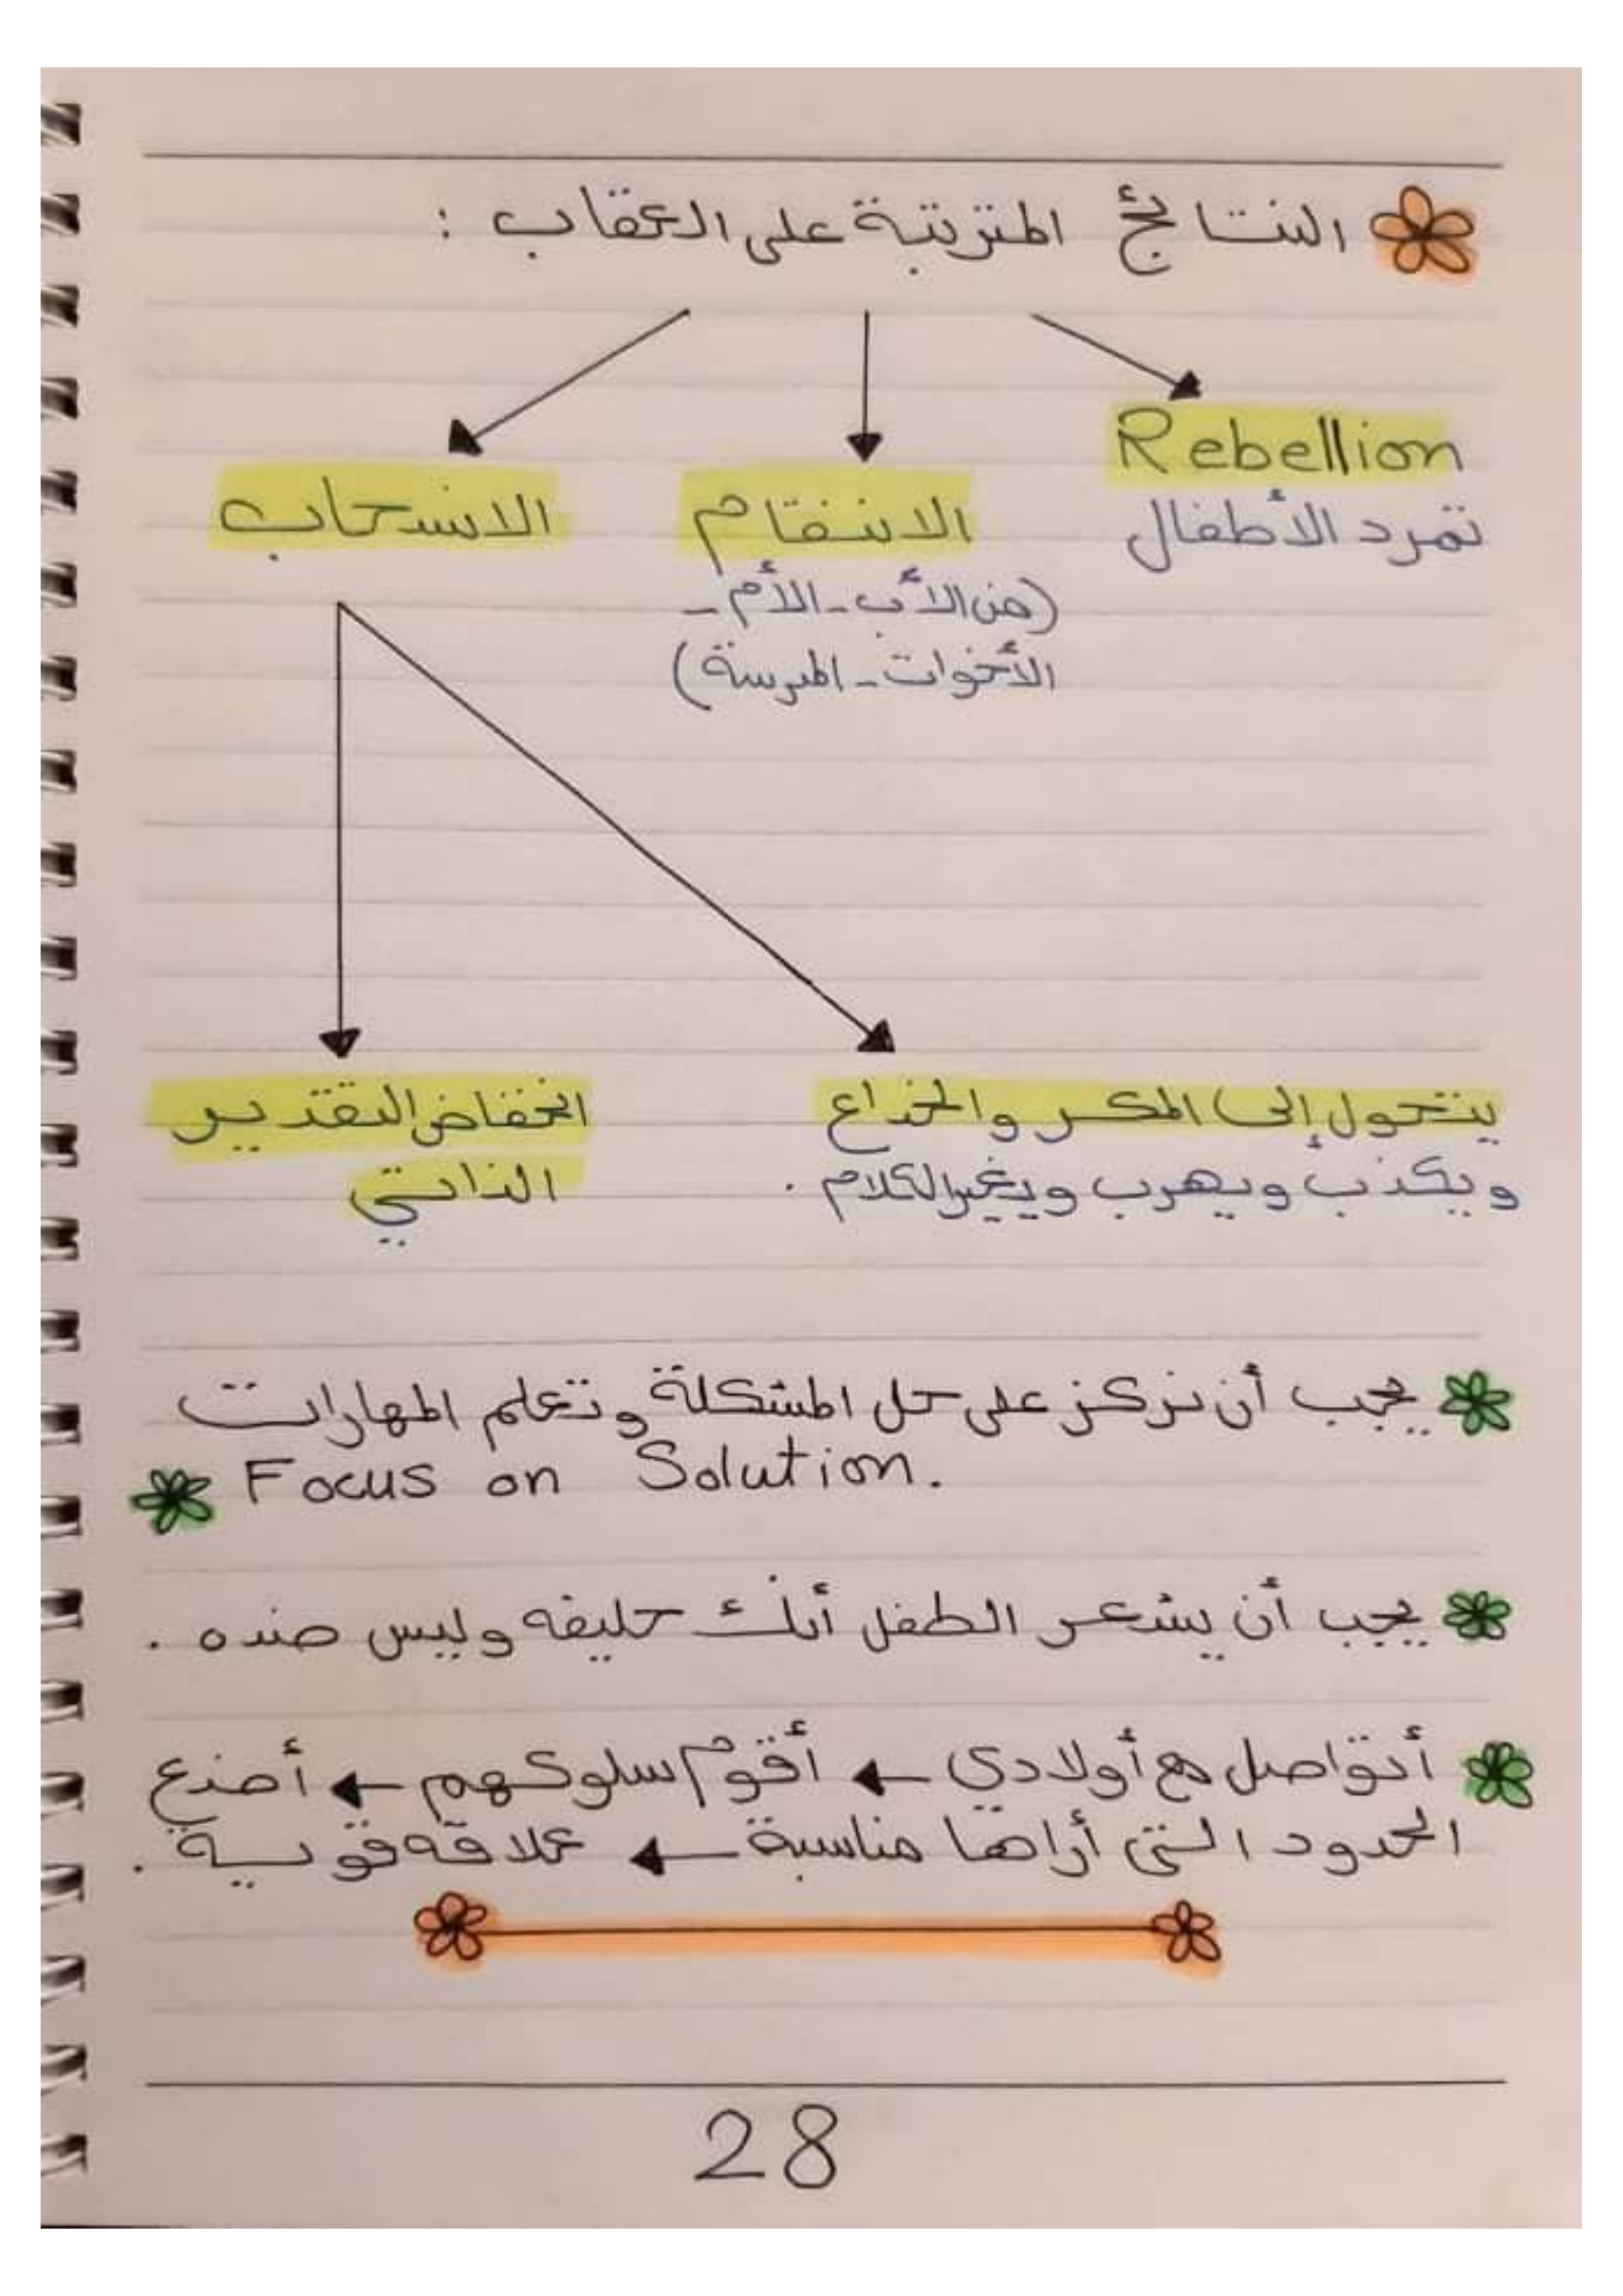 النتائج المترتبة على العقاب :
Rebellion
تمرد الأطفال
الانتقام
(من الأب - الأم -
الأخوات - المدرسة)
الانسحاب
يتحول إلى المكر والخداع
ويكذب ويهرب ويغير الكلام .
انخفاض التقدير
الذاتي
يجب أن نركز على حل المشكلة وتعلم المهارات
Focus on Solution.
يجب أن يشعر الطفل أنك حليفه وليس ضده .
أتواصل مع أولادي ← أقوم سلوكهم ← أضع
الحدود التي أراها مناسبة ← علاقة قوية .
28